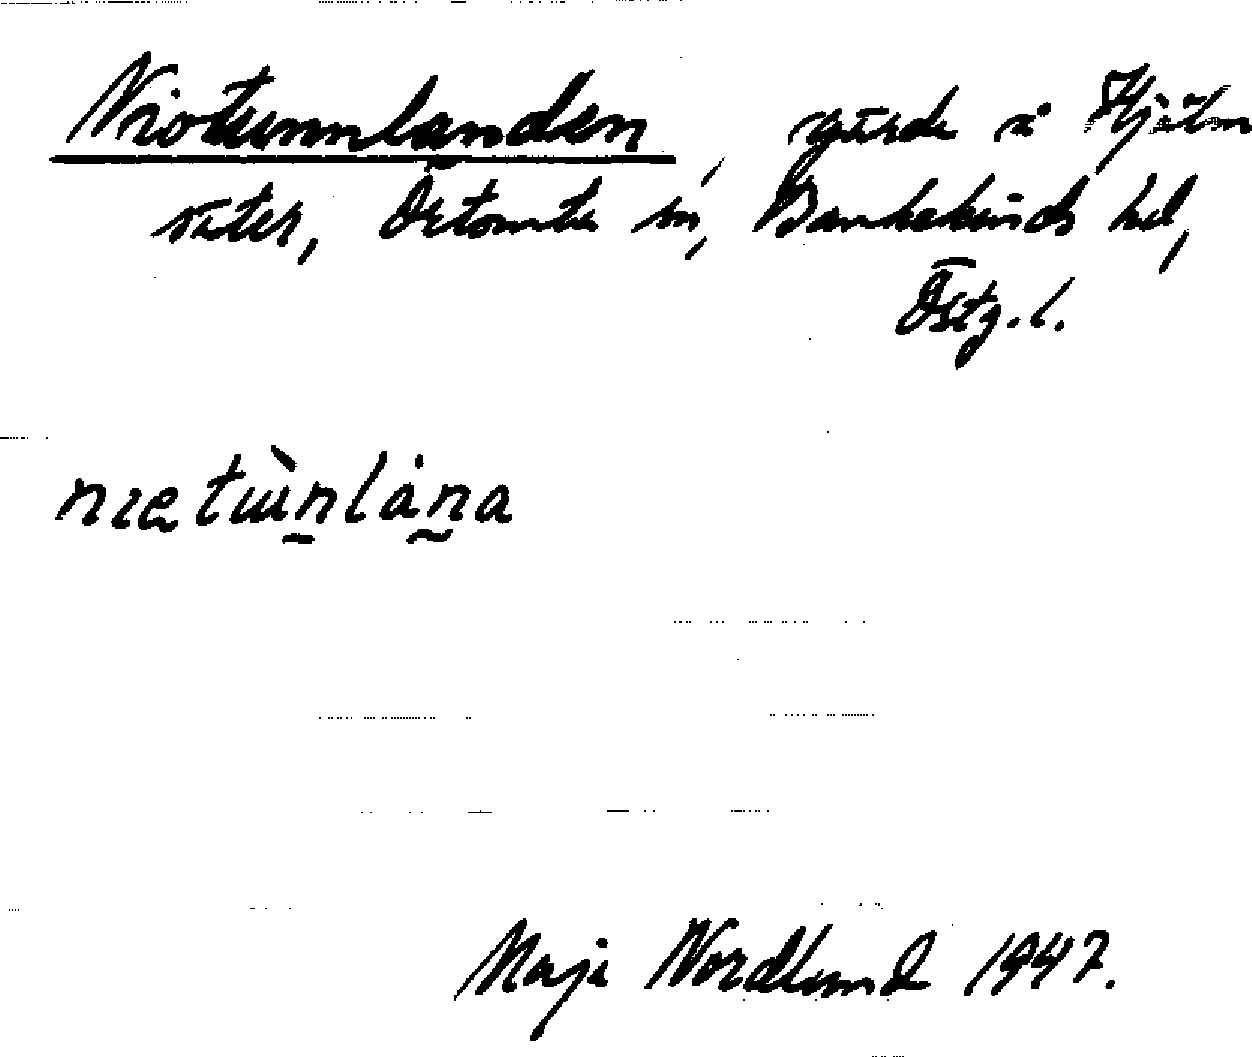 Niotunnlanden, gärde i Hjälm
säter, Örtomta sn, Bankekinds hd,
Östg. l.
nıetùnlána
Maja Nordlund 1947.